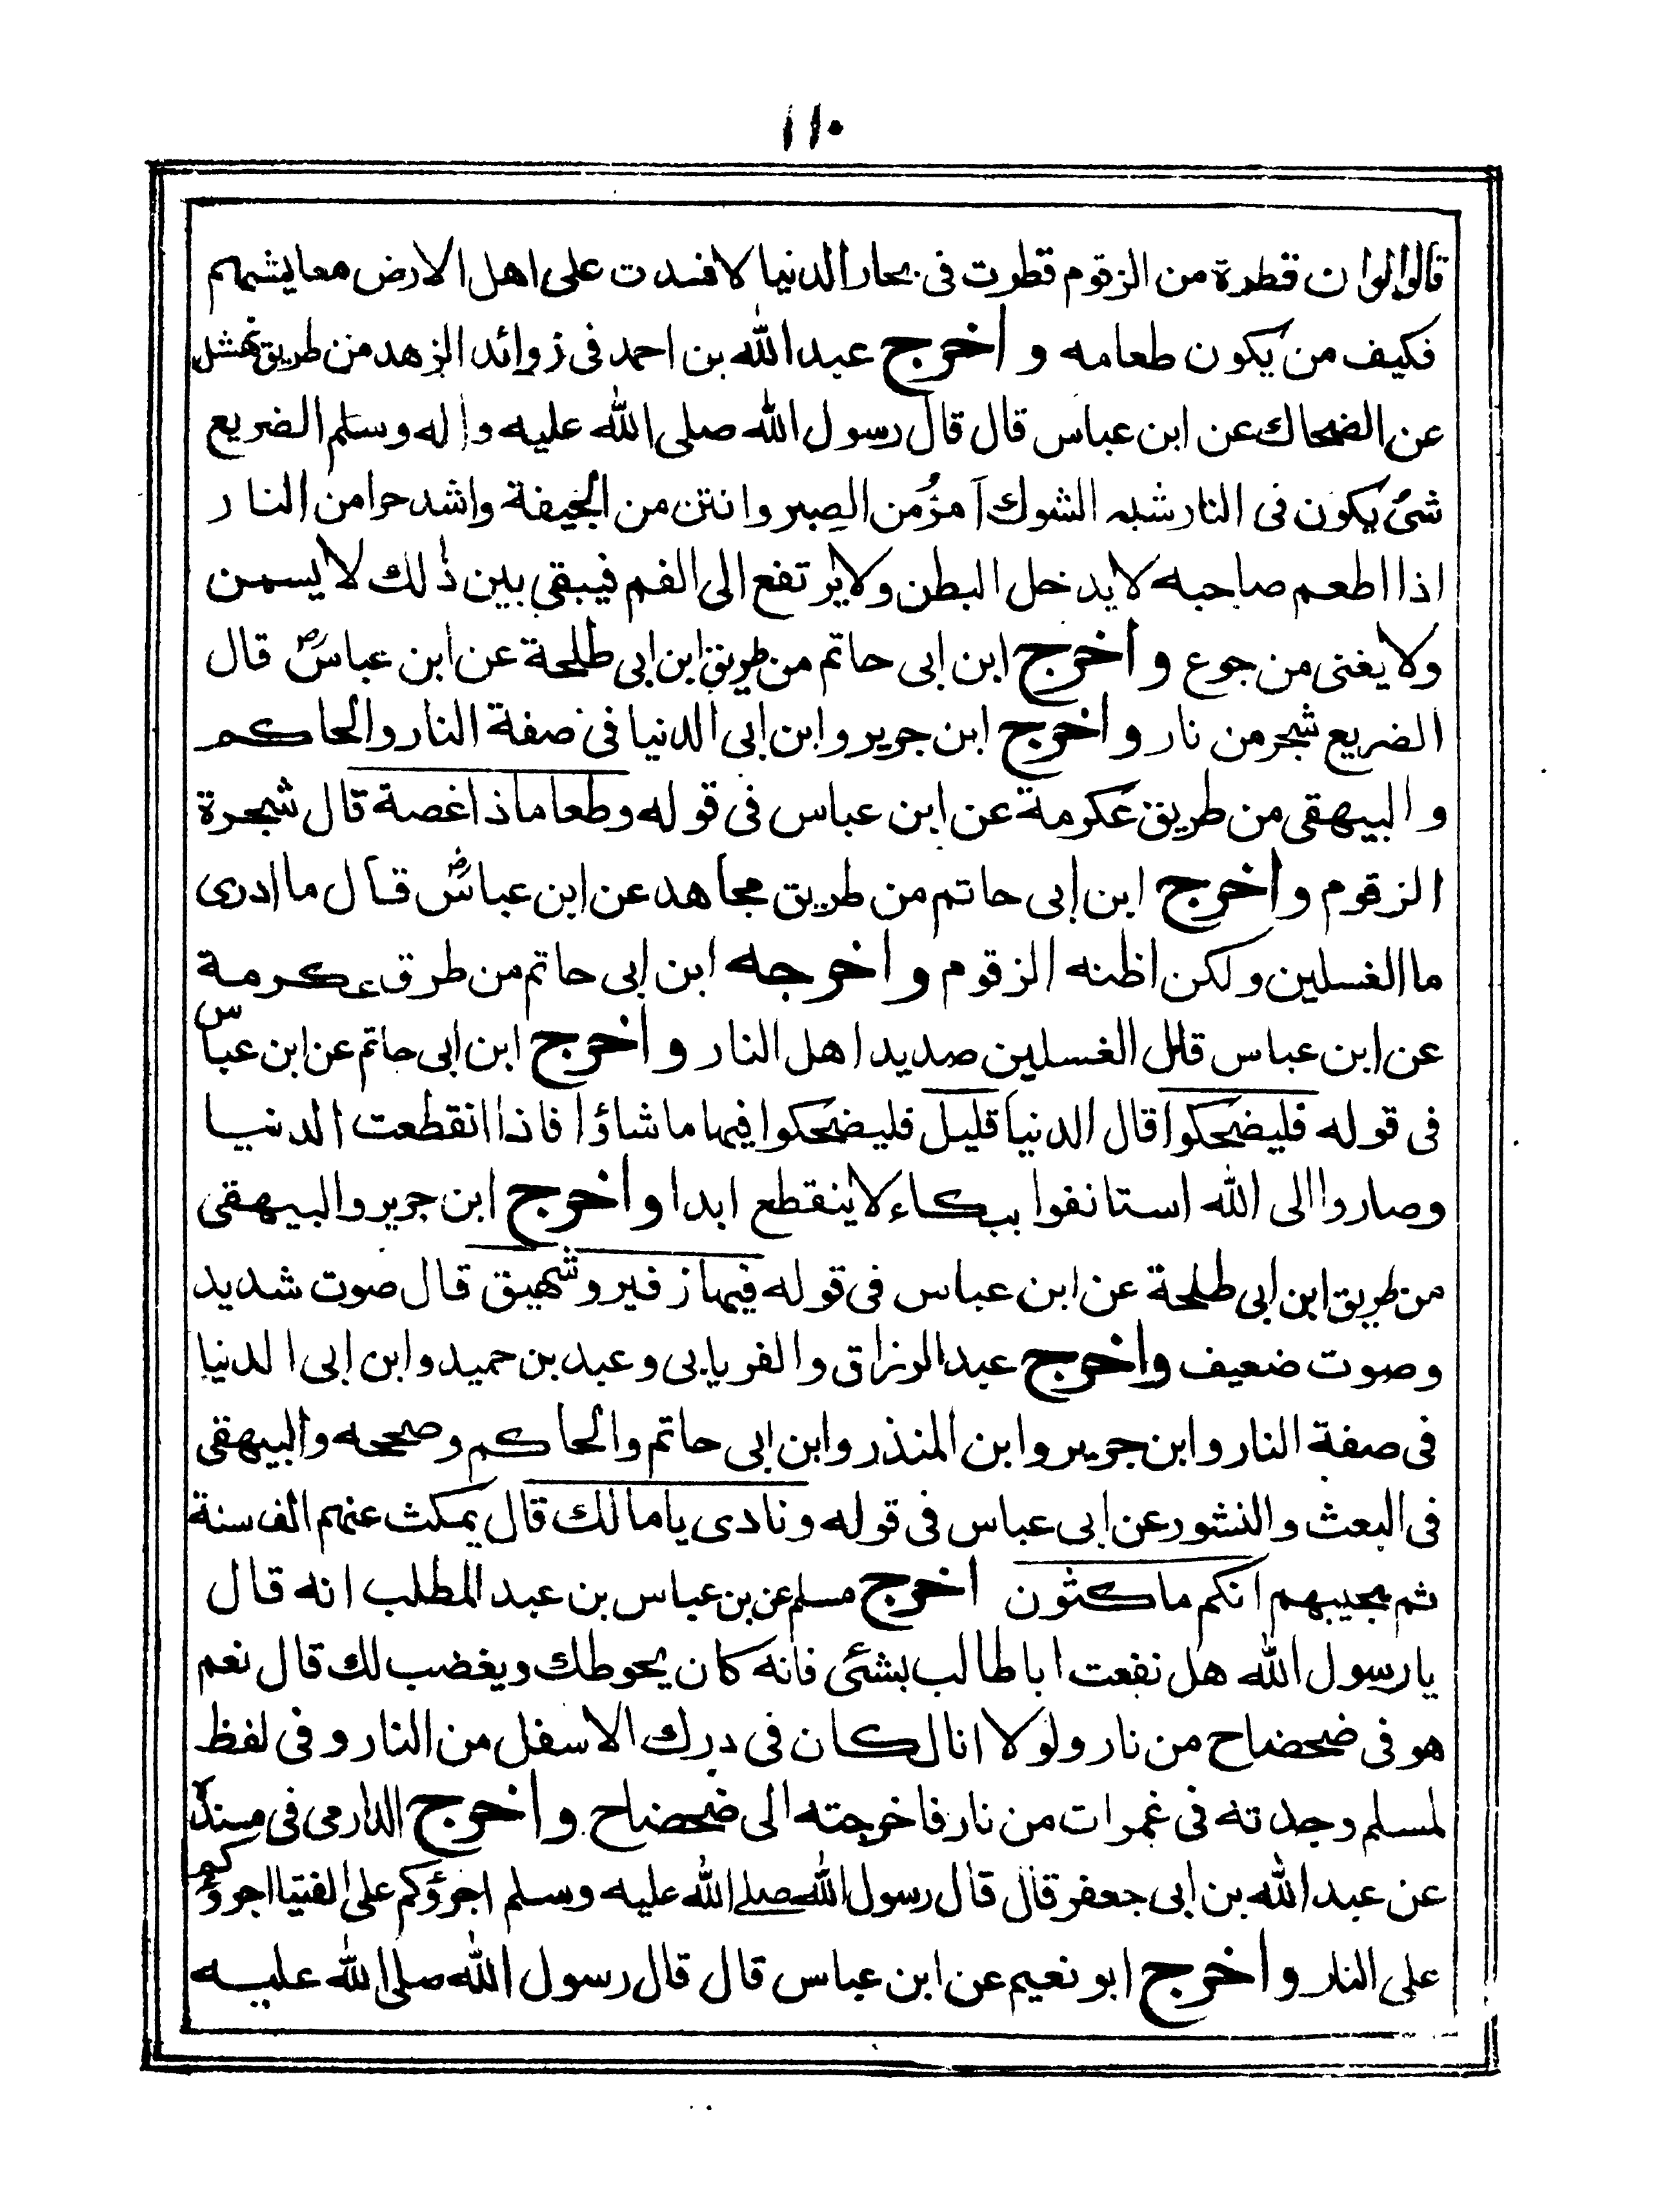 ١١٠
قالوا لوا ن قطرة من الزقوم قطرت فى بحار الدنيا لافسدت على اهل الارض معايشهم
فكيف من يكون طعامه و اخرج عبد الله بن احمد فى زوائد الزهد من طريق نهشل
عن الضحاك عن ابن عباس قال قال رسول الله صلى الله عليه واله وسلم الضريع
شئ يكون فى النار شبه الشوك آمرّ من الصبر وانتن من الجيفة واشد حرا من النار
اذا اطعم صاحبه لا يدخل البطن ولا يرتفع الى الفم فيبقى بين ذٰلك لا يسمن
ولا يغنى من جوع و اخرج ابن ابى حاتم من طريق ابن ابى طلحة عن ابن عباسؓ قال
الضريع شجر من نار و اخرج ابن جرير وابن ابى الدنيا فى صفة النار والحاكم
و البيهقى من طريق عكرمة عن ابن عباس فى قوله وطعاما ذا غصة قال شجرة
الزقوم و اخرج ابن ابى حاتم من طريق مجاهد عن ابن عباسؓ قال ما ادرى
ما الغسلين ولكن اظنه الزقوم و اخرجه ابن ابى حاتم من طرق عكرمة
عن ابن عباس قال الغسلين صديد اهل النار و اخرج ابن ابى حاتم عن ابن عباس
فى قوله فليضحكوا قال الدنيا قليل فليضحكوا فيها ما شاؤا فاذا انقطعت الدنيا
وصاروا الى الله استانفوا ببكاء لا ينقطع ابدا و اخرج ابن جرير والبيهقى
من طريق ابن ابى طلحة عن ابن عباس فى قوله فيها زفير وشهيق قال صوت شديد
وصوت ضعيف و اخرج عبد الرزاق والفريابى وعبد بن حميد وابن ابى الدنيا
فى صفة النار وابن جرير وابن المنذر وابن ابى حاتم والحاكم وصححه والبيهقى
فى البعث والنشور عن ابى عباس فى قوله ونادى يا مالك قال يمكث عنهم الف سنة
ثم يجيبهم انكم ماكثون اخرج مسلم عن بن عباس بن عبد المطلب انه قال
يا رسول الله هل نفعت ابا طالب بشئى فانه كان يحوطك ويغضب لك قال نعم
هو فى ضحضاح من نار ولولا انا لكان فى درك الاسفل من النار و فى لفظ
لمسلم وجدته فى غمرات من نار فاخرجته الى ضحضاح و اخرج الدارمى فى مسنده
عن عبد الله بن ابى جعفر قال قال رسول الله صلى الله عليه وسلم اجرؤكم على الفتيا اجرؤكم
على النار و اخرج ابو نعيم عن ابن عباس قال قال رسول الله صلى الله عليه